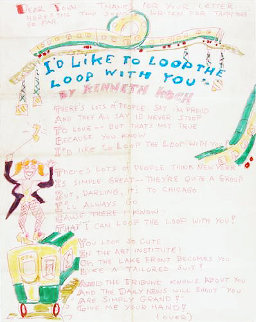 DEAR JOHN, THANKS FOR YOUR LETTER.
HERE'S THE
I'D LIKE TO LOOP THE
LOOP WITH YOU
BY KENNETH KOCH
THERE'S LOTS OF PEOPLE SAY I'M PROUD
AND THEY ALL SAY I'D NEVER STOOP
TO LOVE - BUT THAT'S NOT TRUE
BECAUSE YOU KNOW
I'D LIKE TO LOOP THE LOOP WITH YOU
THERE'S LOTS OF PEOPLE THINK NEW YORK
IS SIMPLE GREAT - THEY'RE QUITE A GROUP
BUT, DARLING, IT'S TO CHICAGO
I'LL ALWAYS GO
CAUSE THERE I KNOW
THAT I CAN LOOP THE LOOP WITH YOU!
YOU LOOK SO CUTE
IN THE ART INSTITUTE!
OH THE LAKE FRONT BECOMES YOU
LIKE A TAILORED SUIT!
AND THE TRIBUNE ABOUT YOU
AND THE DAILY NEWS WILL SHOUT YOU
ARE SIMPLY GRAND!
GIVE ME YOUR HAND!
(OVER)